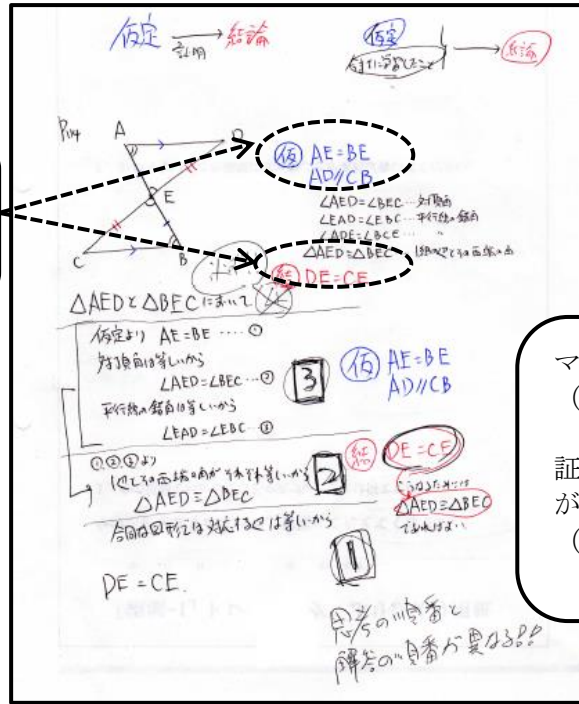 仮定 → 結論
証明
仮定
→ 結論
A
D
E
C
B
仮 AE=BE
AD//CB
∠AED=∠BEC…対頂角
∠EAD=∠EBC…平行線の錯角
∠ADE=∠BCE… 〃
△AED≡△BEC 1組の辺とその両端の角
結 DE=CE
△AEDと△BECにおいて
4
仮定より AE=BE ……①
対頂角は等しいから
∠AED=∠BEC…②
平行線の錯角は等しいから
∠EAD=∠EBC…③
3
仮 AE=BE
AD//CB
①②③より
1辺とその両端の角がそれぞれ等しいから
△AED≡△BEC
2
結 DE=CE
こうなるためには
△AED≡△BEC
であればよい
合同な図形では対応する辺は等しいから
DE=CE.
1
思考の順番と
解答の順番が異なる!!
マ
(
証
が
(